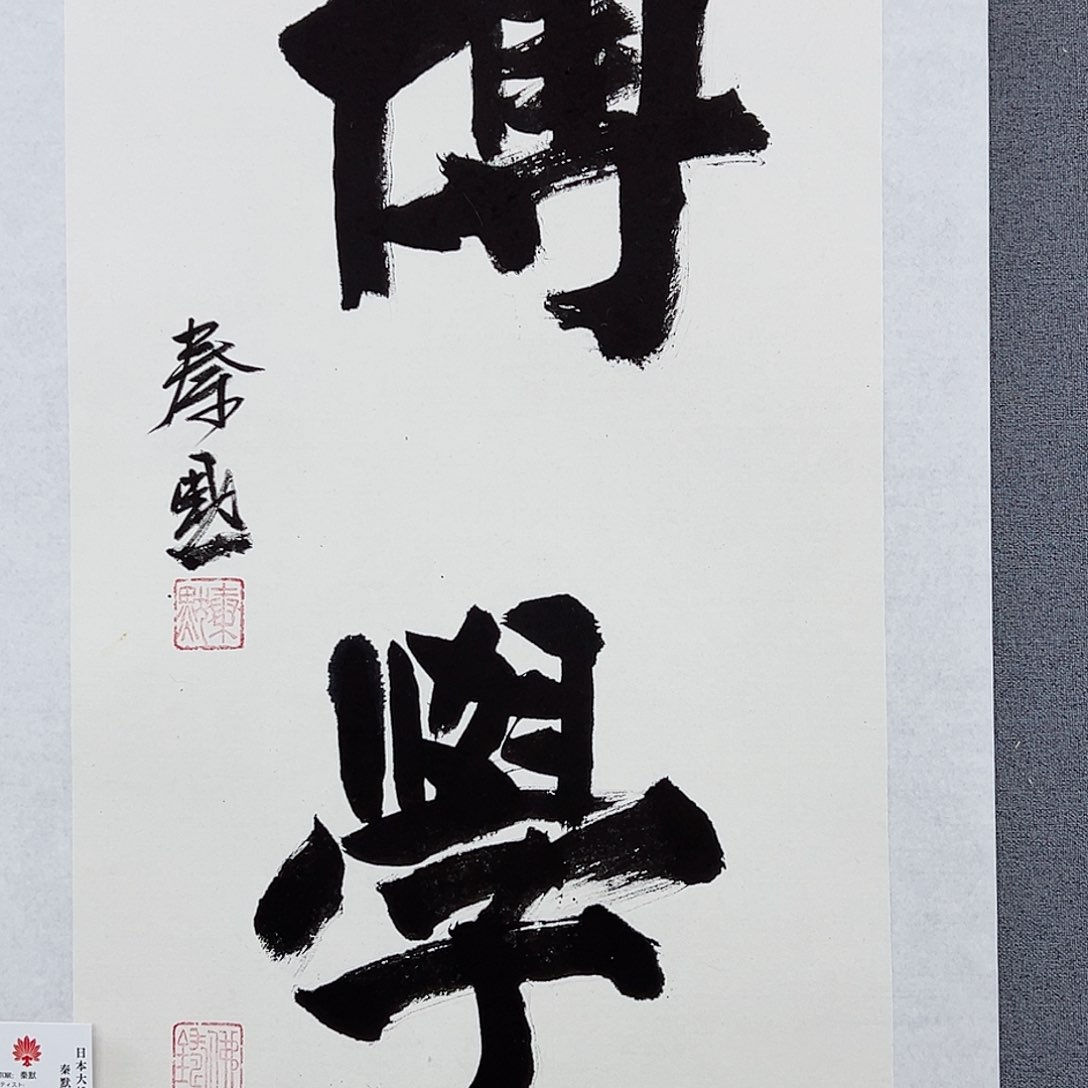 博學
秦默
秦默
佛
日本大
秦默
秦默
ティスト: